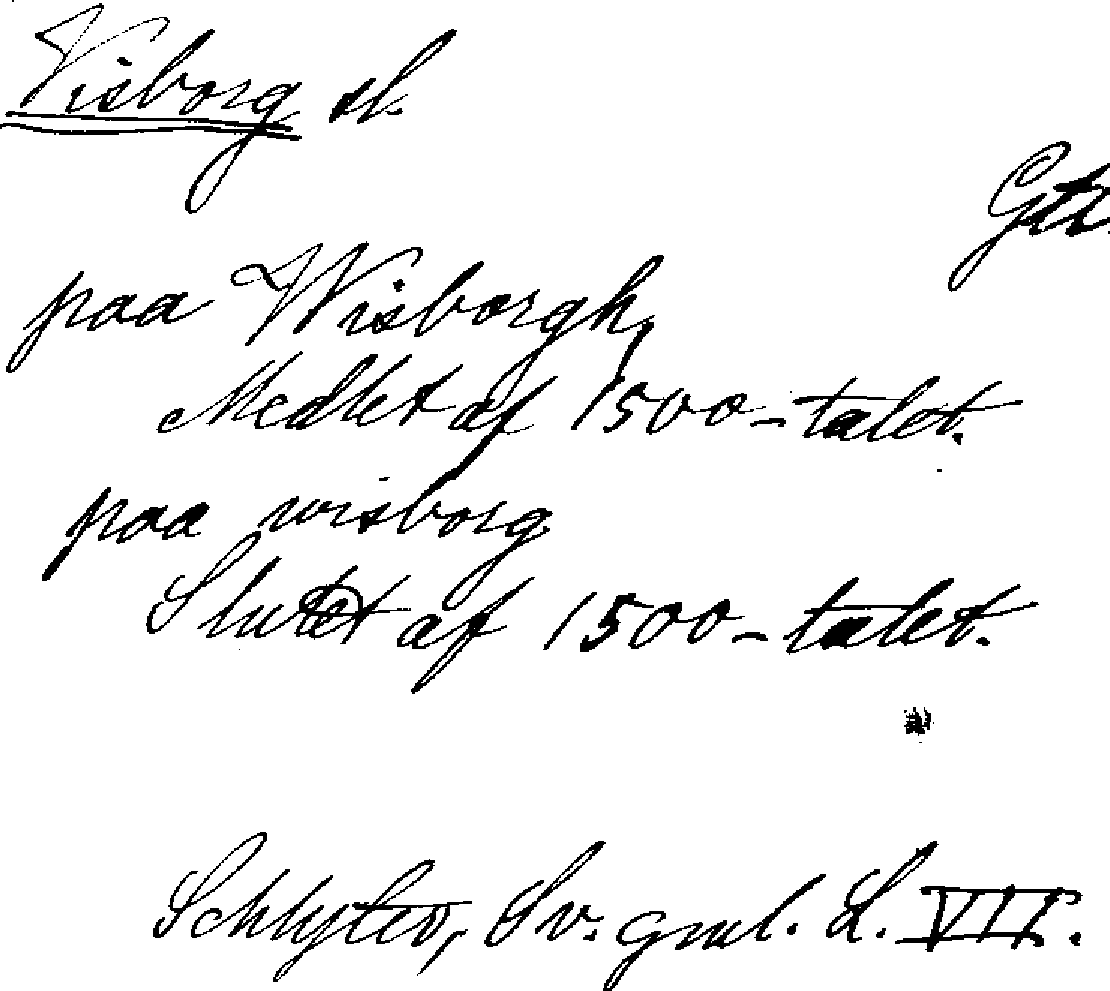 Visborg sl.
Gtl.
paa Wisborgh,
Medlet af 1500-talet.
paa wisborg
Slutet af 1500-talet.
Schlyter, Sv. gml. L. VII.